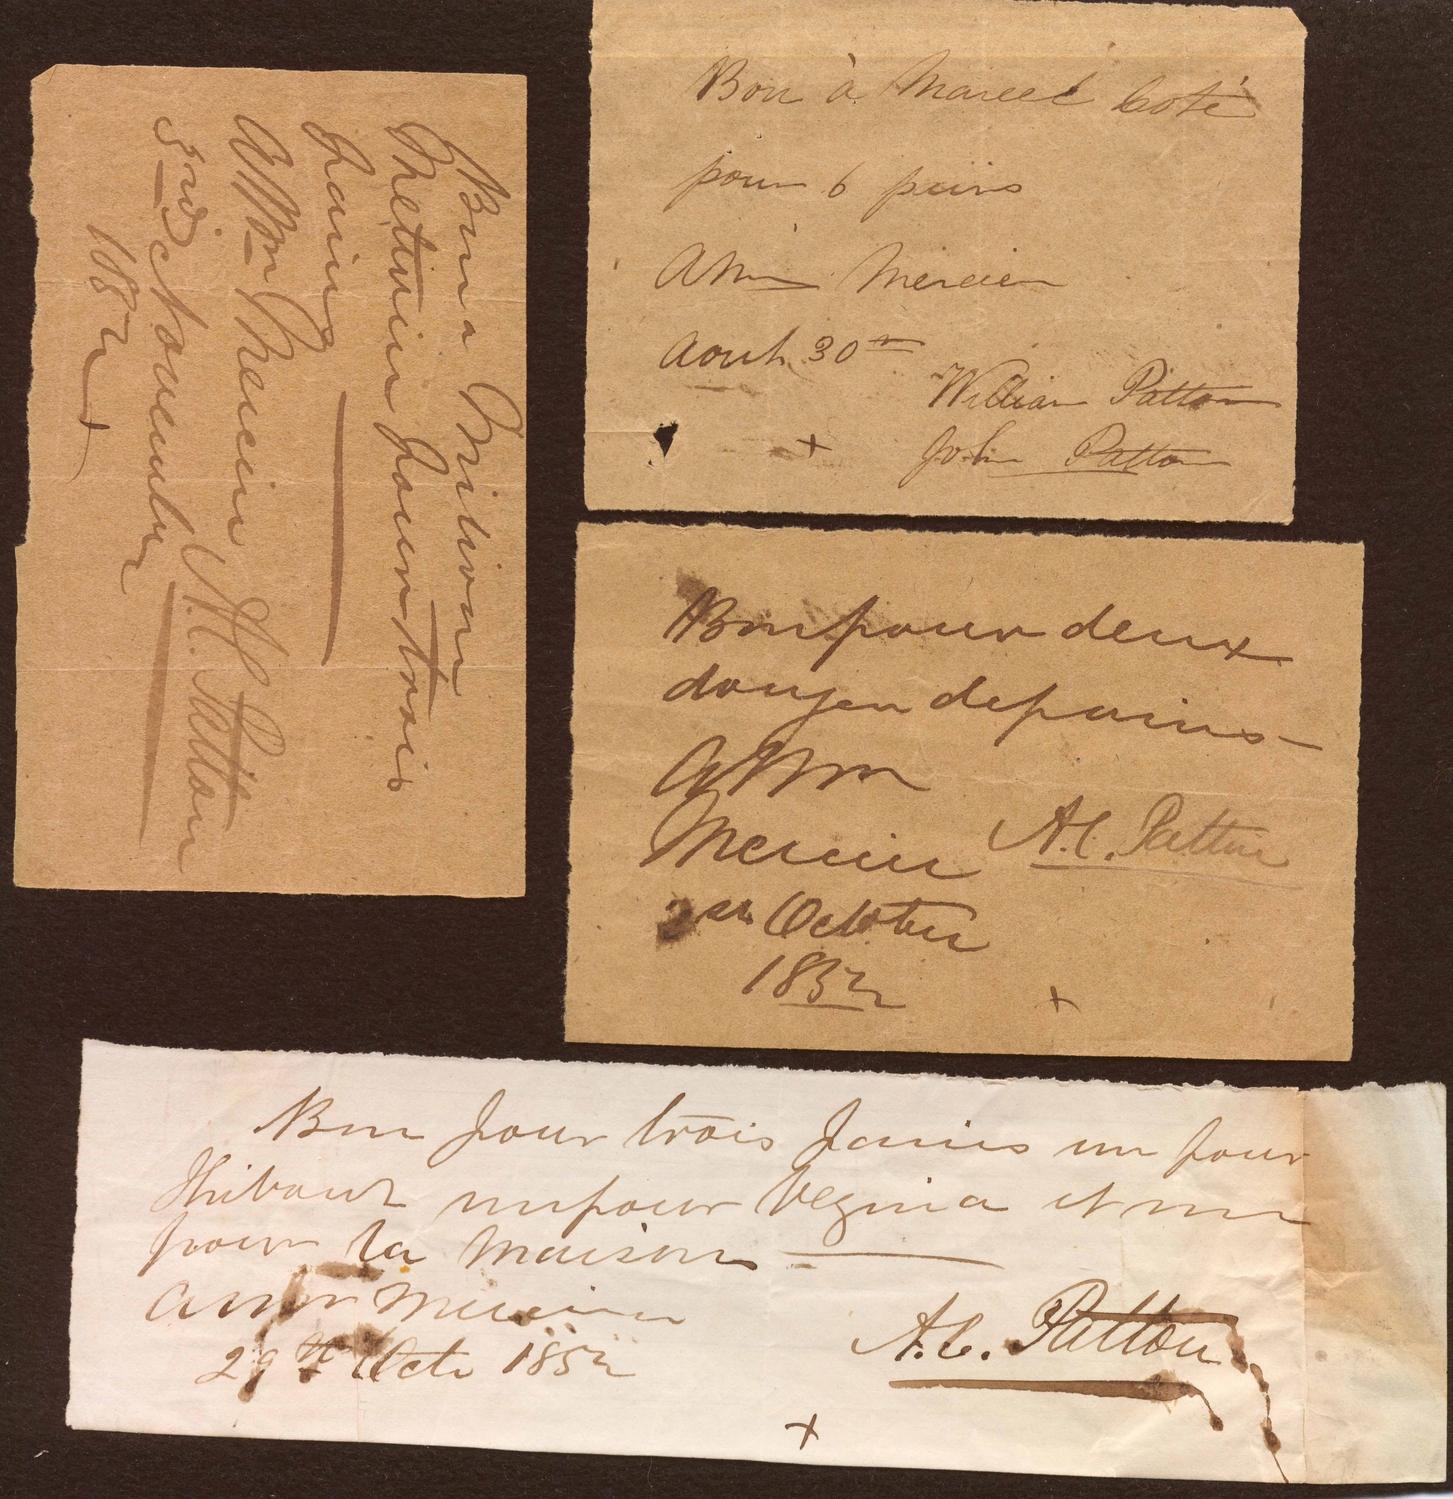 Bon a
pour trois
pains
A Mr Mercier A.C. Patton
3rd November
1852
Bon à Marcel Coté
pour 6 pains
A Mr Mercier
Aout 30
William Patton
John Patton
Bon pour deux
douzen de pains
A Mr
Mercier A.C. Patton
October
1852
Bon pour trois pains un pour
Thibault un pour et un
pour la Maison
A Mr Mercier
29th Oct 1852 A.C. Patton